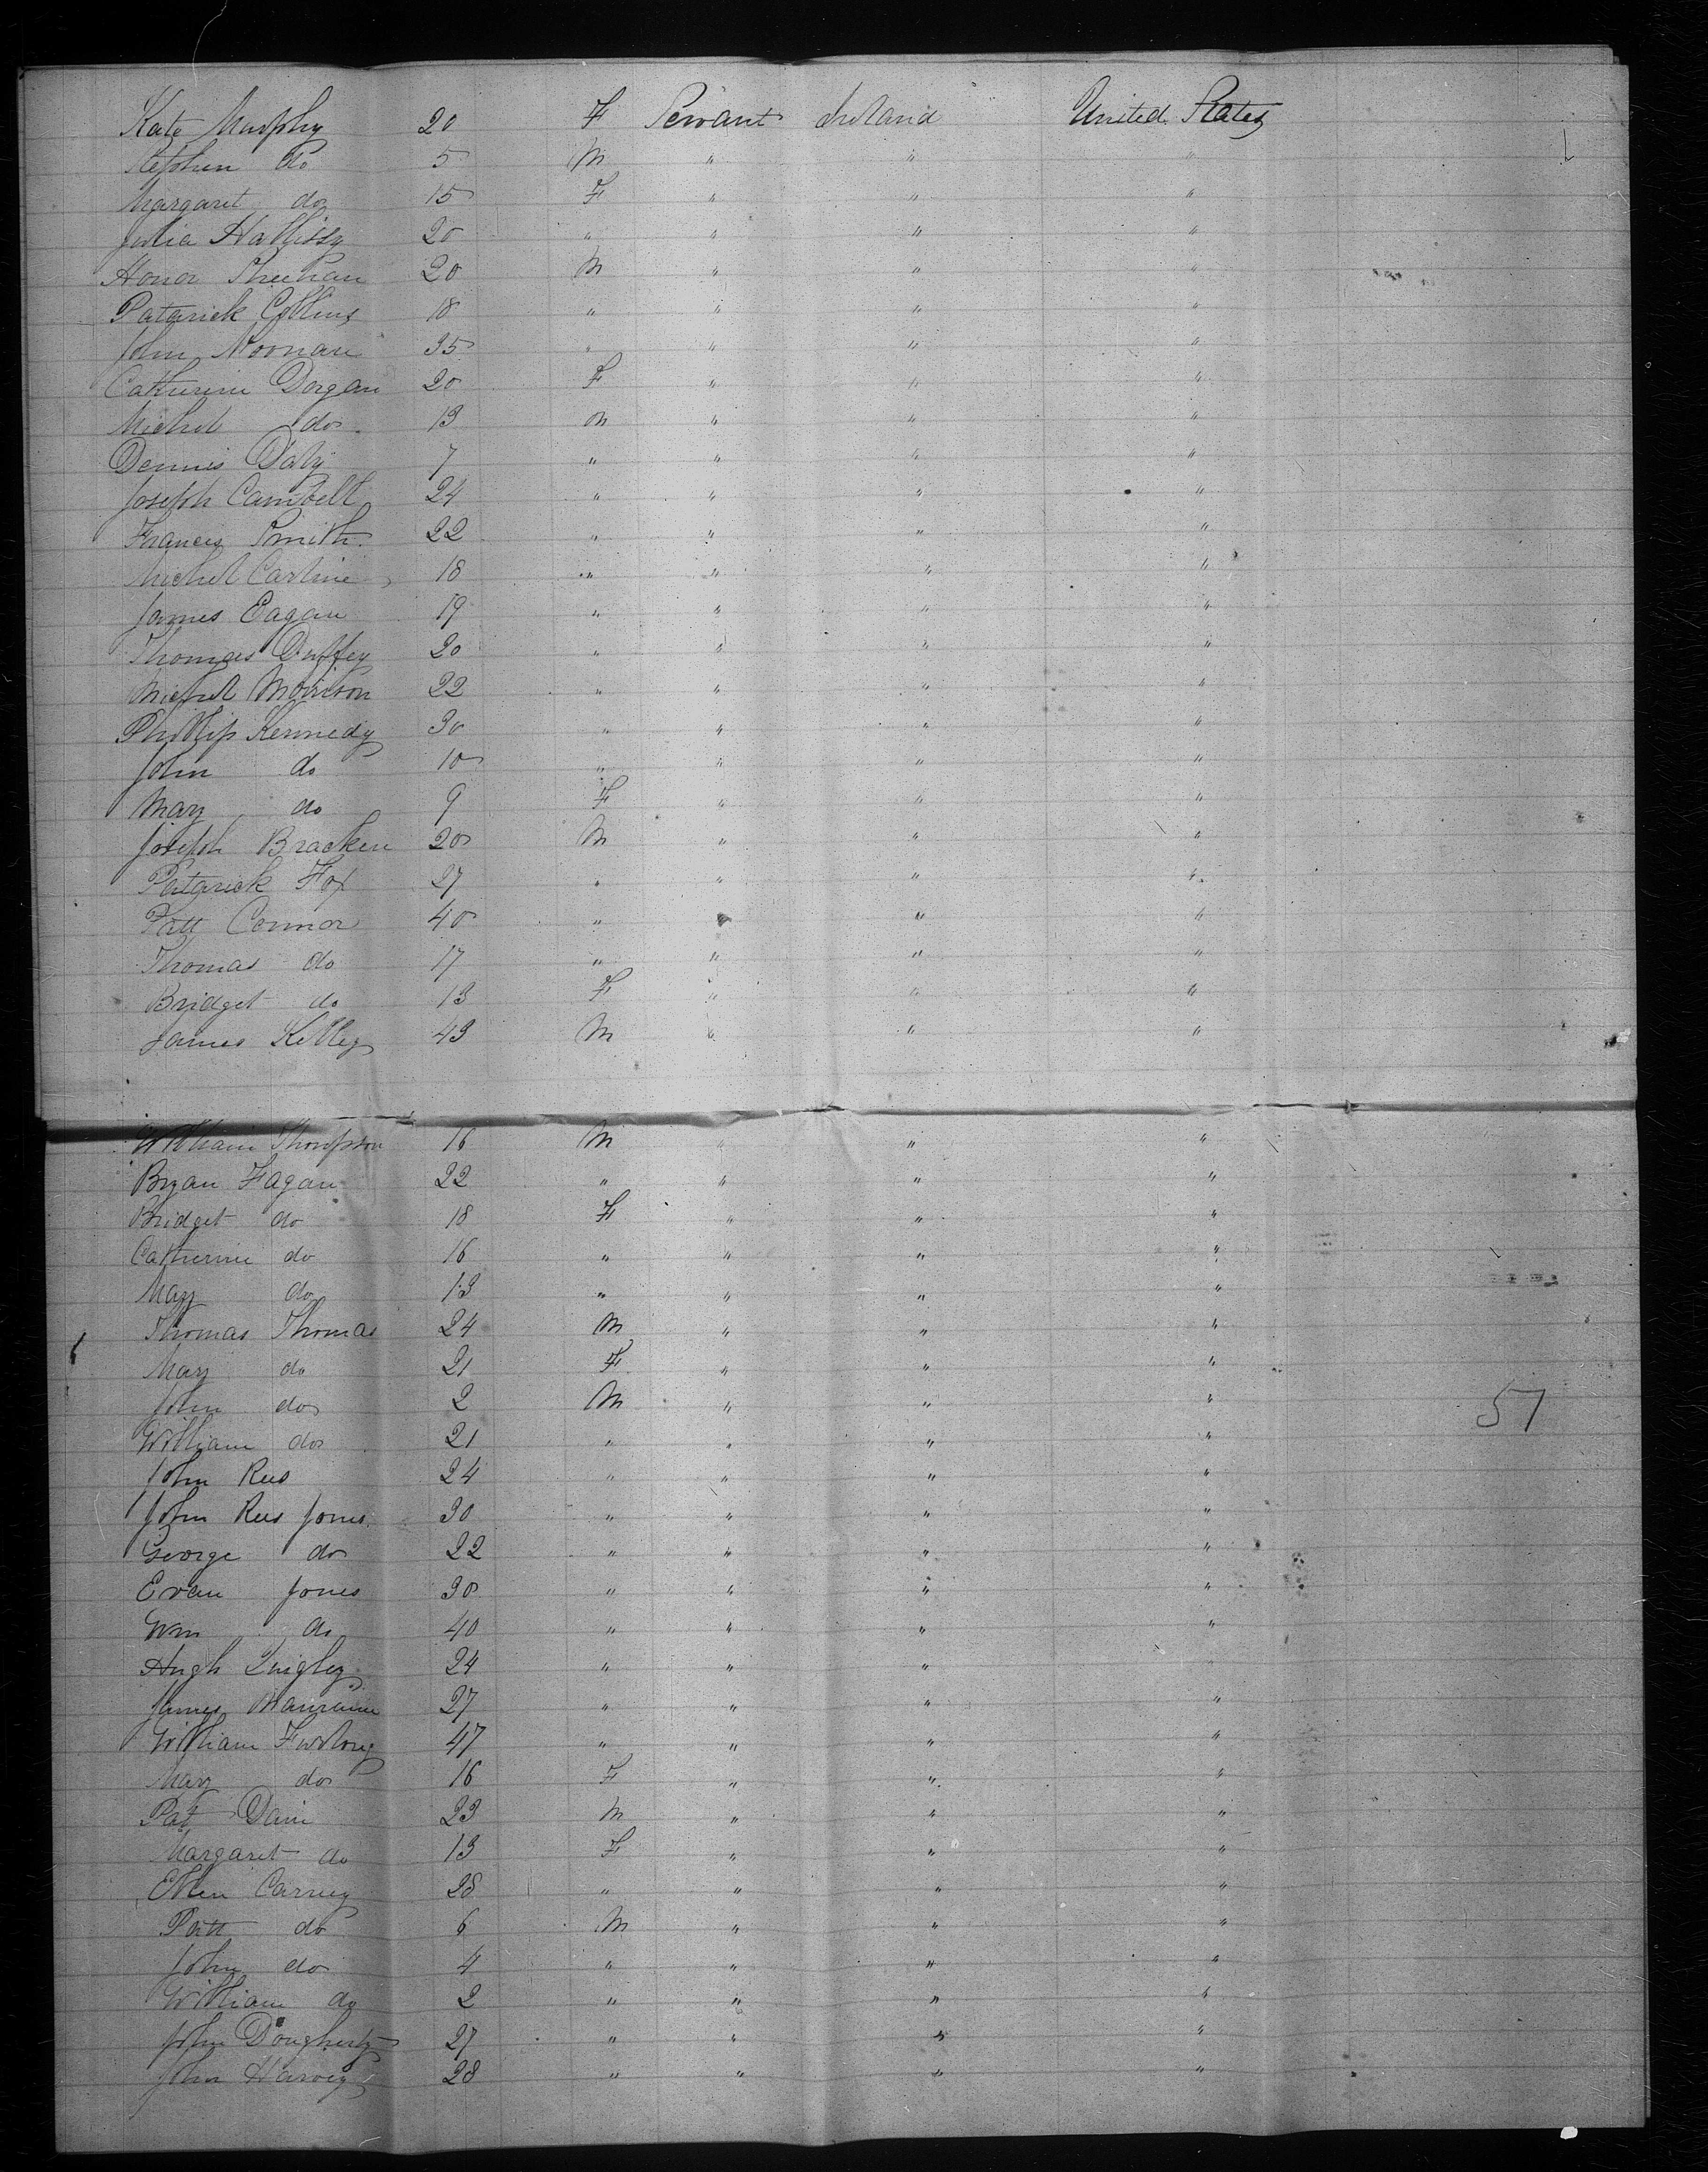 Kate Murphy 20 F Servant Ireland United States
Stephen do 5 M " " "
Margaret do 15 F " " "
Julia Hallissy 20 " " " "
Honor Sheehan 20 M " " "
Patarick Collins 18 " " " "
John Noonan 35 " " " "
Catherine Dorgan 20 F " " "
Michel do 13 M " " "
Dennis Daly 7 " " " "
Joseph Cambell 24 " " " "
Francis Smith 22 " " " "
Michel 18 " " " "
James Eagan 19 " " " "
Thomas Duffey 20 " " " "
Michel Morrison 22 " " " "
Phillip Kennedy 30 " " " "
John do 10 " " " "
Mary do 9 F " " "
Joseph Bracken 20 M " " "
Patarick Fox 27 " " " "
Patt Connor 40 " " " "
Thomas do 17 " " " "
Bridget do 13 F " " "
James Kelley 43 M " " "
William Thompson 16 M " " "
Bryan Fagan 22 " " " "
Bridget do 18 F " " "
Catherine do 16 " " " "
Mary do 13 " " " "
Thomas Thomas 24 M " " "
Mary do 21 F " " "
John do 2 M " " "
57
William do 21 " " " "
John Rees 24 " " " "
John Rees Jones 30 " " " "
George do 22 " " " "
Evan Jones 30 " " " "
Wm do 40 " " " "
Hugh Quigley 24 " " "
James 27 " " " "
William Furlong 47 " " " "
Mary do 16 F " " "
Pat 23 M " " "
Margaret do 13 F " " "
Ellen Carney 28 " " " "
Patt do 6 M " " "
John do 4 " " " "
William do 2 " " " "
John Dougherty 27 " " " "
John Harvey 28 " " " "